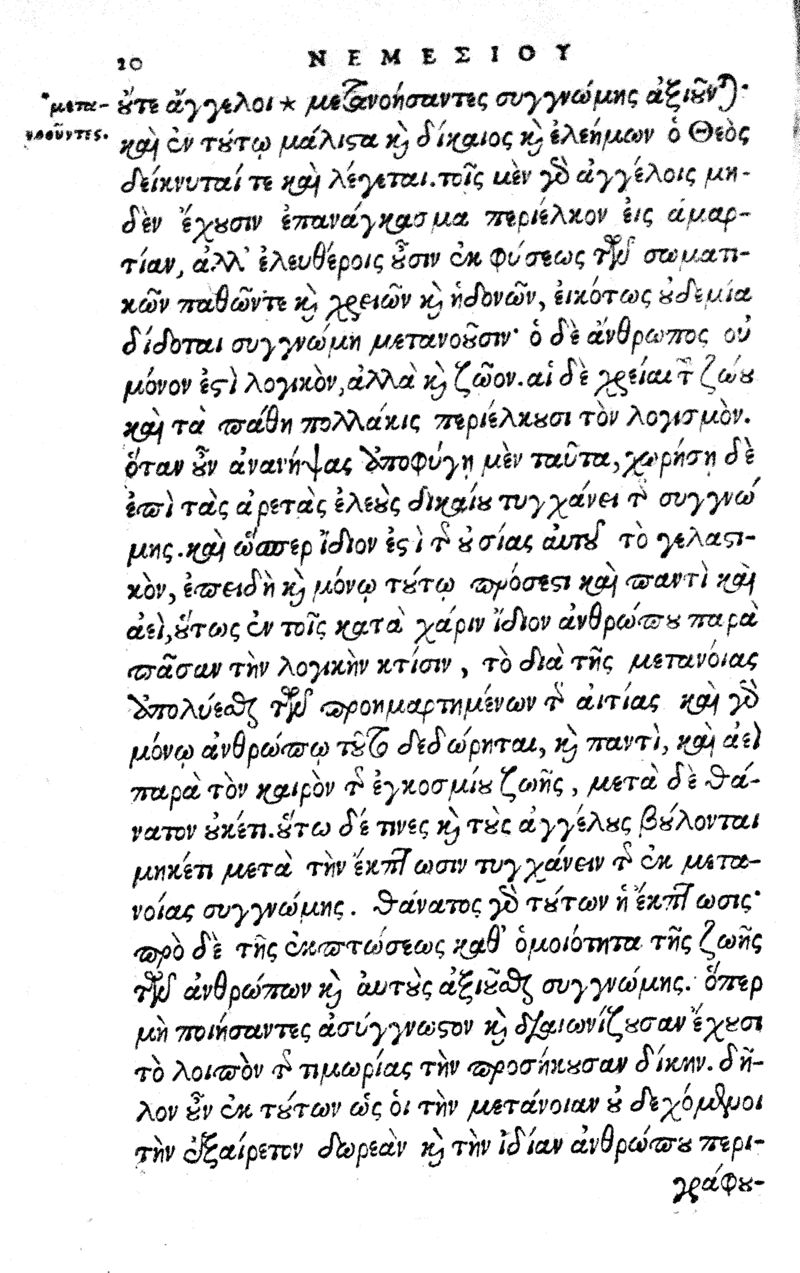 20 ΝΕΜΕΣΙΟΥ
οὔτε ἄγγελοι * μετανοήσαντες συγγνώμης ἀξιοῦνται·
*μετα-
νοοῦντες.
καὶ ἐν τούτῳ μάλιστα καὶ δίκαιος καὶ ἐλεήμων ὁ Θεὸς
δείκνυταί τε καὶ λέγεται. τοῖς μὲν γὰρ ἀγγέλοις μη-
δὲν ἔχουσιν ἐπανάγκασμα περιέλκον εἰς ἁμαρ-
τίαν, ἀλλ' ἐλευθέροις οὖσιν ἐκ φύσεως τῶν σωματι-
κῶν παθῶντε καὶ χρειῶν καὶ ἡδονῶν, εἰκότως οὐδεμία
δίδοται συγγνώμη μετανοοῦσιν· ὁ δὲ ἄνθρωπος οὐ
μόνον ἐστὶ λογικὸν, ἀλλὰ καὶ ζῶον. αἱ δὲ χρεῖαι τοῦ ζώου
καὶ τὰ πάθη πολλάκις περιέλκουσι τὸν λογισμὸν.
ὅταν οὖν ἀνανήψας ὑποφύγῃ μὲν ταῦτα, χωρήσῃ δὲ
ἐπὶ τὰς ἀρετὰς ἐλεοὺς δικαίου τυγχάνει τῆς συγγνώ
μης. καὶ ὥσπερ ἴδιον ἐστὶ τῆς οὐσίας αὐτοῦ τὸ γελαστι-
κὸν, ἐπειδὴ καὶ μόνῳ τούτῳ πρόσεστι καὶ παντὶ καὶ
ἀεὶ, οὕτως ἐν τοῖς κατὰ χάριν ἴδιον ἀνθρώπου παρὰ
πᾶσαν τὴν λογικὴν κτίσιν, τὸ διὰ τῆς μετανοίας
ὑπολύεσθαι τῶν προημαρτημένων τῆς αἰτίας καὶ γὰρ
μόνῳ ἀνθρώπῳ τοῦτο δεδώρηται, καὶ παντὶ, καὶ ἀεὶ
παρὰ τὸν καιρὸν τῆς ἐγκοσμίου ζωῆς, μετὰ δὲ θά-
νατον οὐκέτι. οὕτω δέ τινες καὶ τοὺς ἀγγέλους βούλονται
μηκέτι μετὰ τὴν ἔκπτωσιν τυγχάνειν τῆς ἐκ μετα-
νοίας συγγνώμης. θάνατος γὰρ τούτων ἡ ἔκπτωσις·
πρὸ δὲ τῆς ἐκπτώσεως καθ' ὁμοιότητα τῆς ζωῆς
τῶν ἀνθρώπων καὶ αὐτοὺς ἀξιοῦσθαι συγγνώμης. ὅπερ
μὴ ποιήσαντες ἀσύγγνωστον καὶ διαιωνίζουσαν ἔχουσι
τὸ λοιπὸν τῆς τιμωρίας τὴν προσήκουσαν δίκην. δῆ-
λον οὖν ἐκ τούτων ὡς οἱ τὴν μετάνοιαν οὐ δεχόμενοι
τὴν ἐξαίρετον δωρεὰν καὶ τὴν ἰδίαν ἀνθρώπου περι-
γράφου-